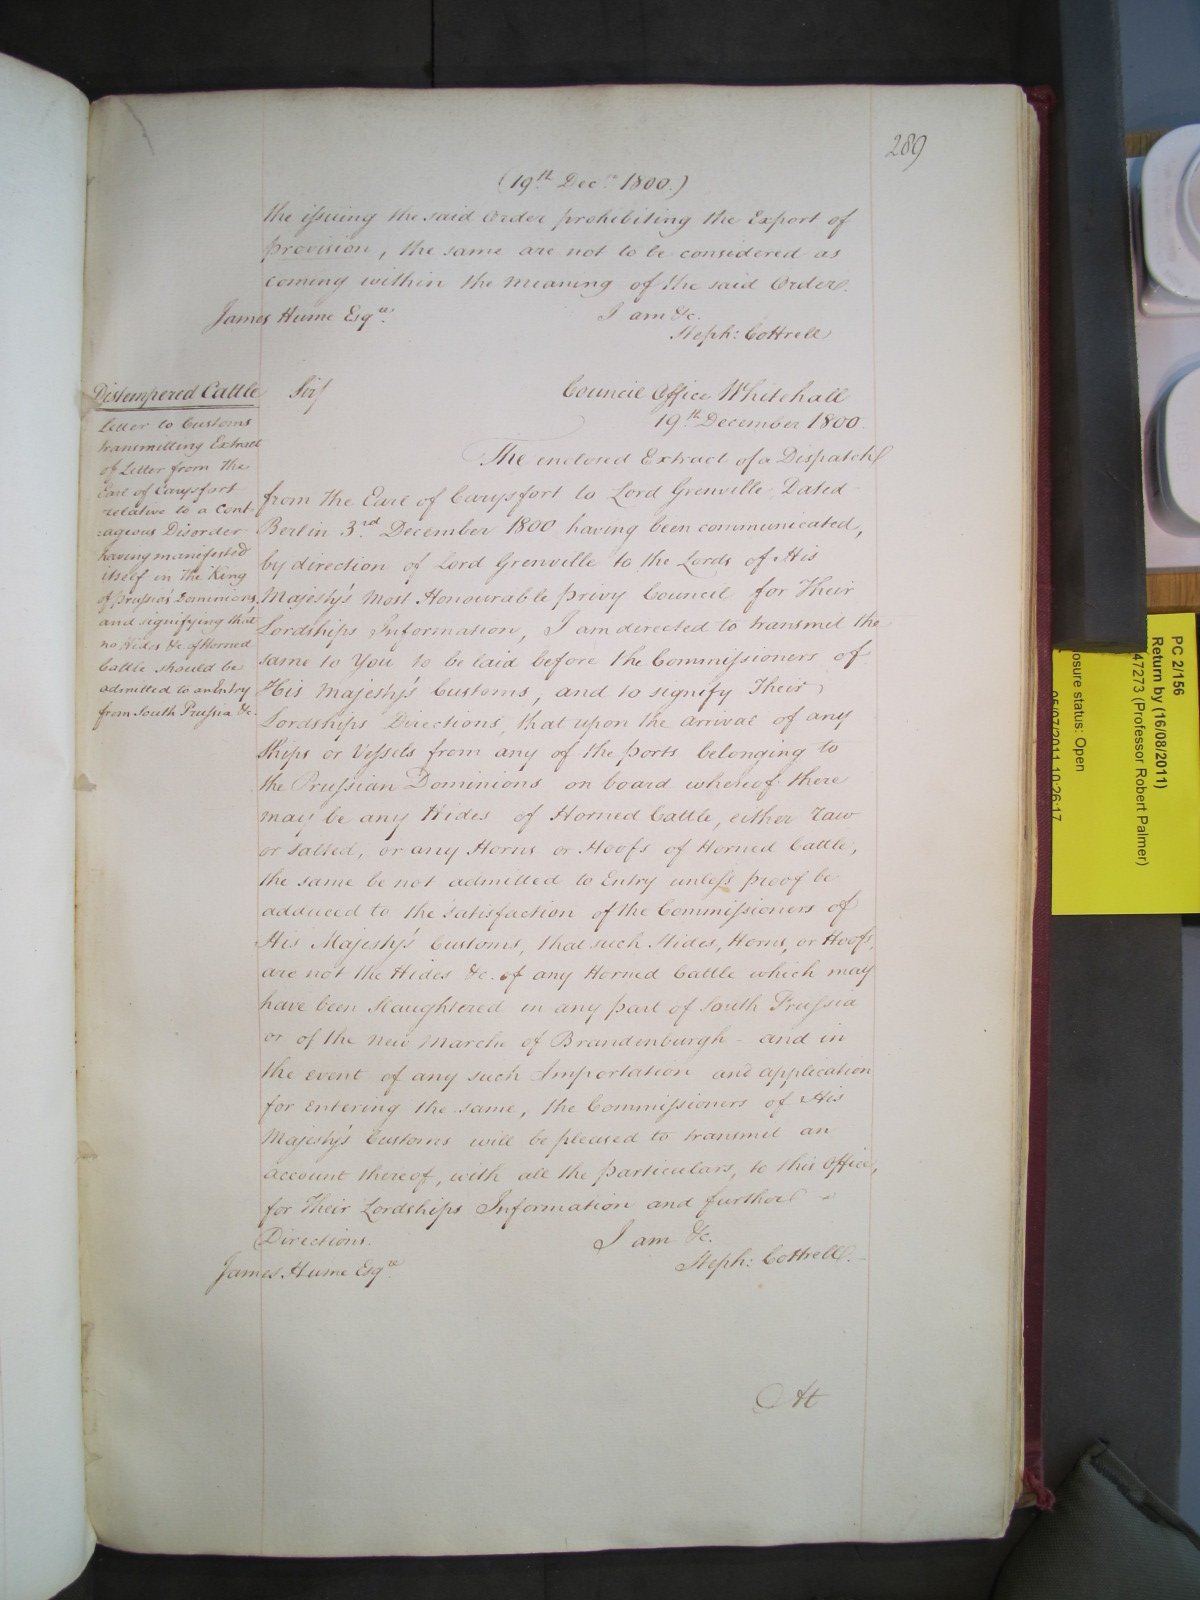 289
(19th Decr. 1800.)
the issuing the said Order prohibiting the Export of
provision, the same are not to be considered as
coming within the meaning of the said Order.
James Hume Esqre. I am &c.
Steph: Cottrell
Distempered Cattle
Letter to Customs
transmitting Extract
of Letter from the
Earl of Carysfort
relative to a Cont-
=ageous Disorder
having manifested
itself in the King
of Prussia's Dominions,
and signifying that
no Hides &c. of Horned
Cattle should be
admitted to an Entry
from South Prussia &c.
Sir/ Council Office Whitehall
19th December 1800.
The enclosed Extract of a Dispatch
from the Earl of Carysfort to Lord Grenville, Dated
Berlin 3rd. December 1800 having been communicated,
by direction of Lord Grenville to the Lords of His
Majesty's Most Honourable Privy Council for Their
Lordships Information, I am directed to transmit the
same to You to be laid before the Commissioners of
His Majesty's Customs, and to signify Their
Lordships Directions, that upon the arrival of any
Ships or Vessels from any of the ports belonging to
the Prussian Dominions on board whereof there
may be any Hides of Horned Cattle, either raw
or salted, or any Horns or Hoofs of Horned Cattle,
the same be not admitted to Entry unless proof be
adduced to the satisfaction of the Commissioners of
His Majesty's Customs, that such Hides, Horns, or Hoofs,
are not the Hides &c. of any Horned Cattle which may
have been slaughtered in any part of South Prussia
or of the new Marche of Brandenburgh - and in
the event of any such Importation and application
for Entering the same, the Commissioners of His
Majesty's Customs will be pleased to transmit an
account thereof, with all the particulars, to this Office,
for Their Lordships Information and further
Directions. I am &c.
James Hume Esqre Steph: Cottrell.
At
PC 2/156
Return by (16/08/2011)
47273 (Professor Robert Palmer)
osure status: Open
05/07/2011 10:26:17